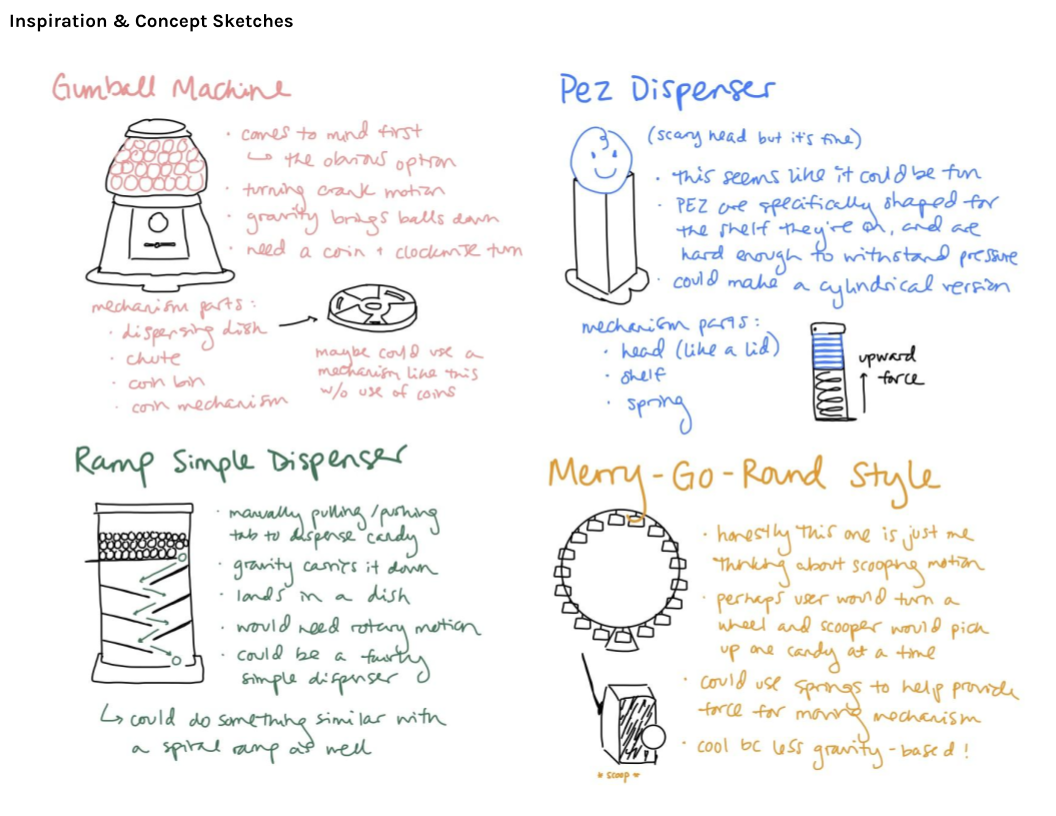 Inspiration & Concept Sketches
Gumball Machine
• comes to mind first
↳ the obvious option
• turning crank motion
• gravity brings balls down
• need a coin + clockwise turn
mechanism parts:
• dispensing dish
• chute
• coin bin
• coin mechanism
maybe could use a
mechanism like this
w/o use of coins
Pez Dispenser
(scary head but it's fine)
• this seems like it could be fun
• PEZ are specifically shaped for
the shelf they're on, and are
hard enough to withstand pressure
• could make a cylindrical version
mechanism parts:
• head (like a lid)
• shelf
• spring
upward
force
Ramp Simple Dispenser
• manually pulling/pushing
tab to dispense candy
• gravity carries it down
• lands in a dish
• would need rotary motion
• could be a fairly
simple dispenser
↳ could do something similar with
a spiral ramp as well
Merry-Go-Round Style
• honestly this one is just me
thinking about scooping motion
• perhaps user would turn a
wheel and scooper would pick
up one candy at a time
• could use springs to help provide
force for moving mechanism
• cool bc less gravity-based!
* scoop *